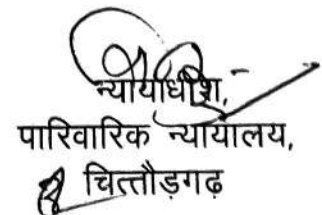 न्यायाधीश,
पारिवारिक न्यायालय,
चित्तौड़गढ़